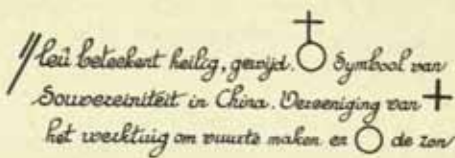 leü beteekent heilig, gewijd. Symbool van
Souvereiniteit in China. Vereeniging van
het werktuig om vuurte maken en de zon